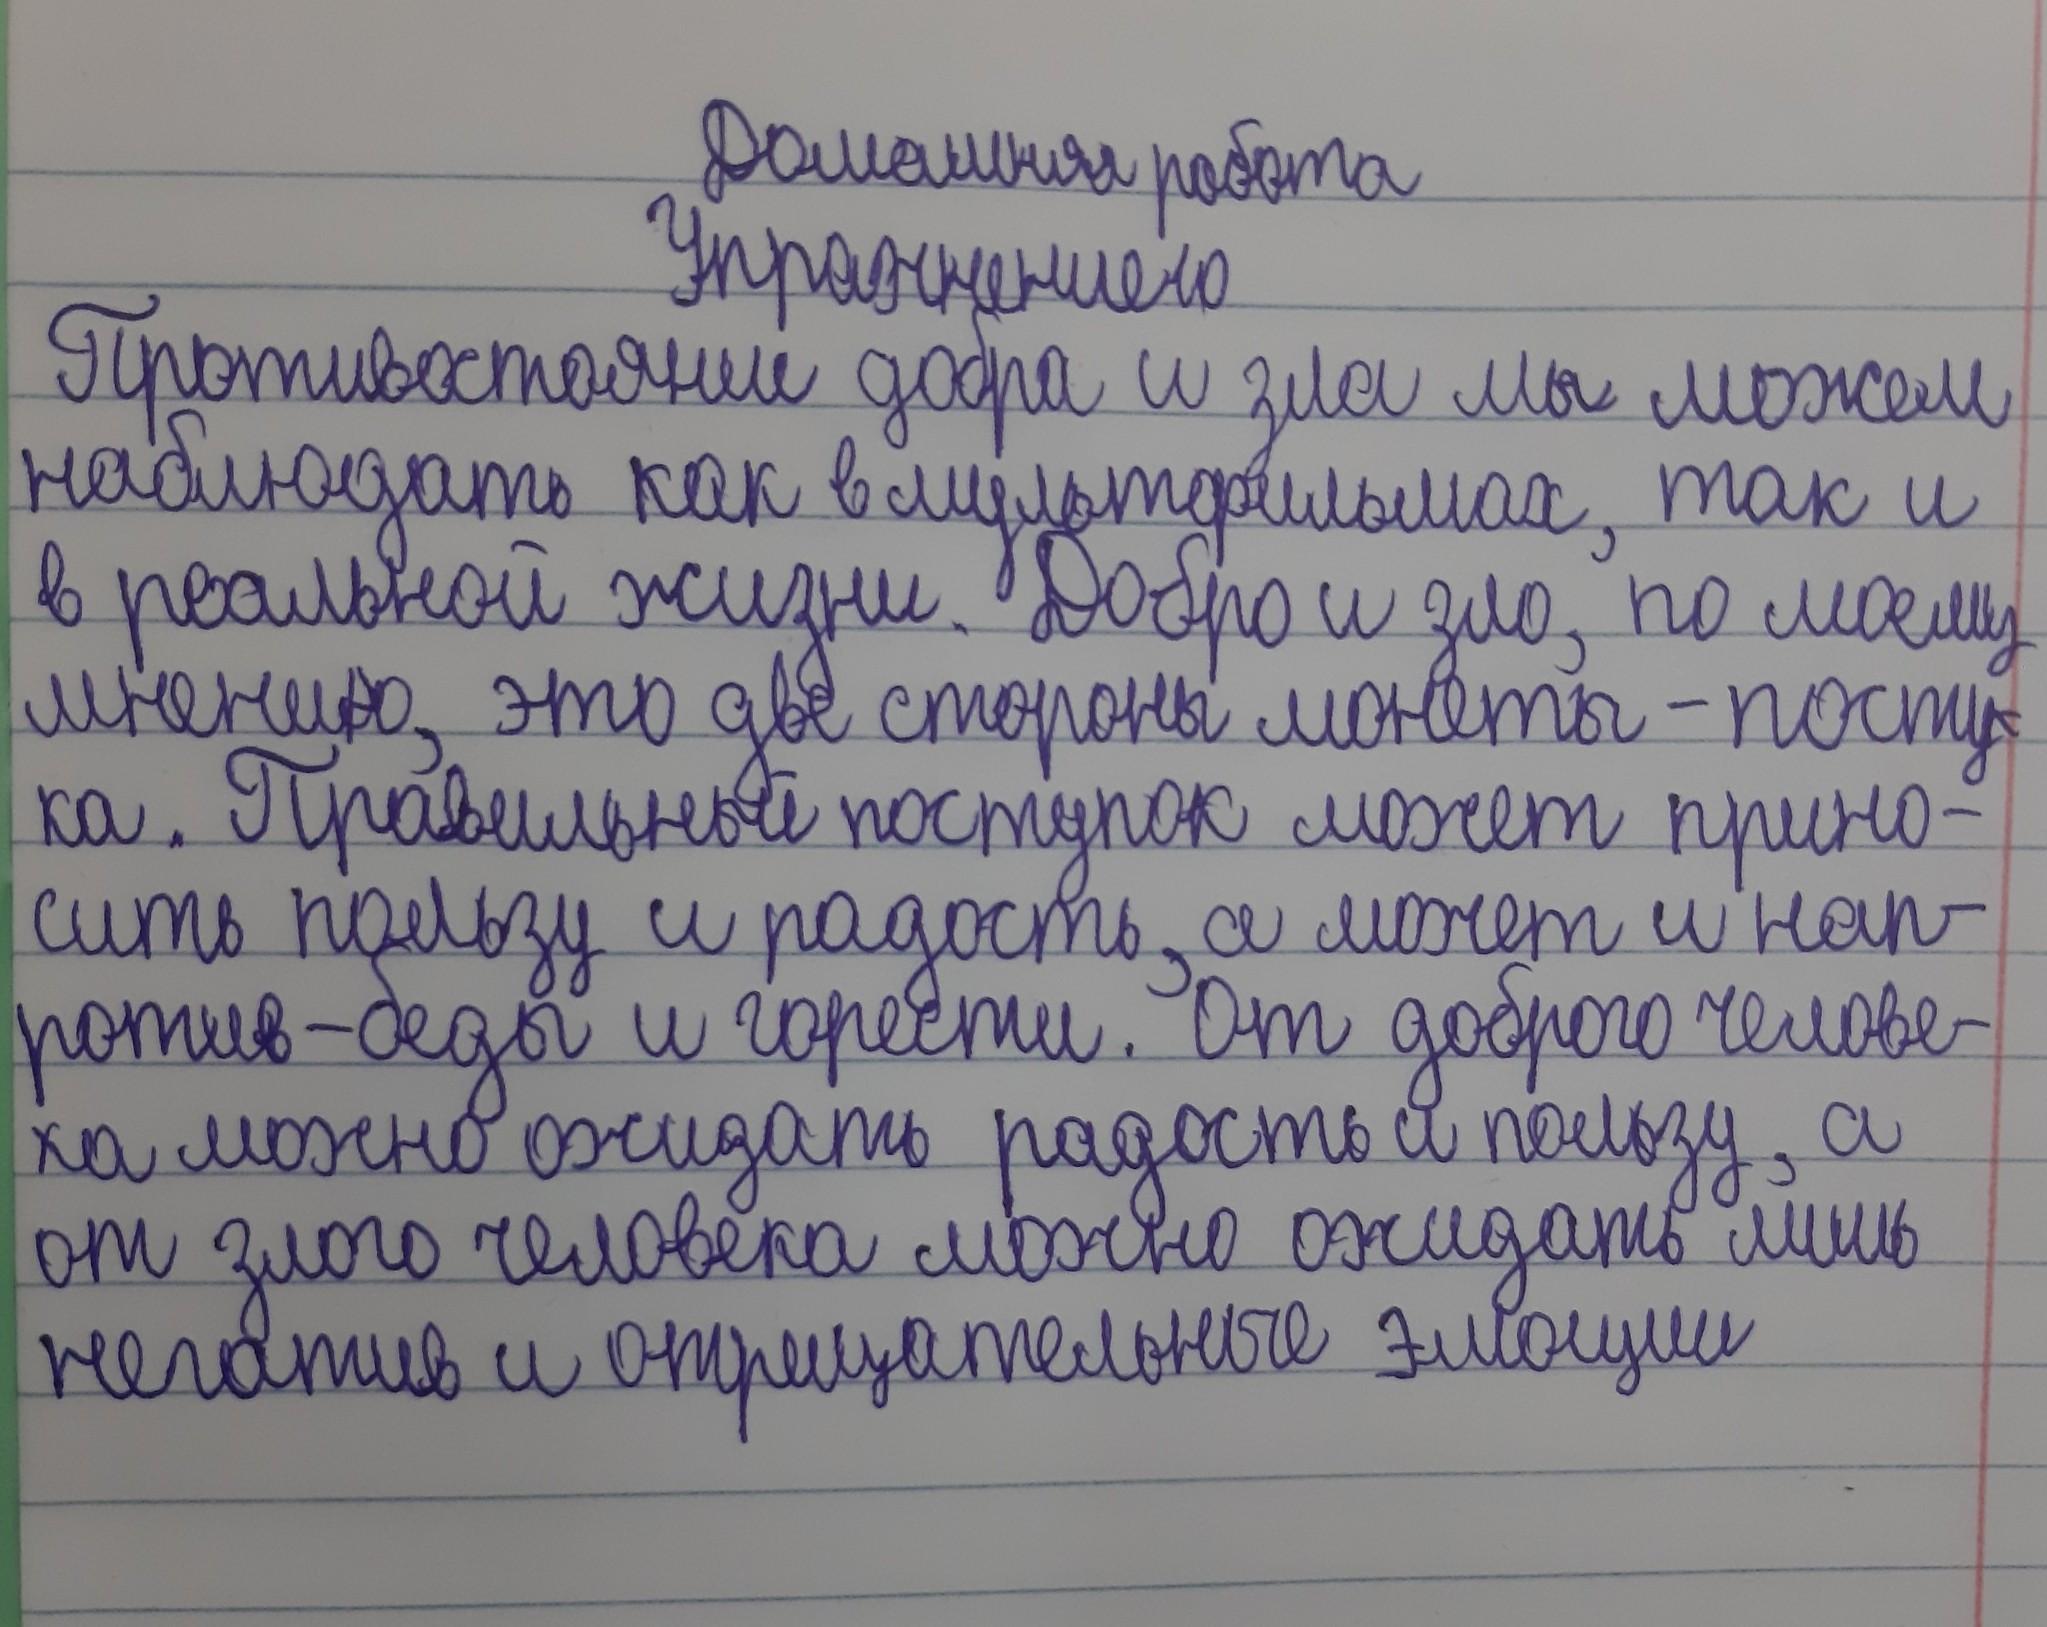 Домашняя работа
Упражнение 10
Противостоянии добра и зла мы можем
наблюдать как в мультфильмах, так и
в реальной жизни. Добро и зло, по моему
мнению, это две стороны монеты - посту-
ка. Правильный поступок может прино-
сить пользу и радость, а может и нап-
ротив - беды и горести. От доброго челове-
ка можно ожидать радость и пользу, а
от злого человека можно ожидать лишь
негатив и отрицательные эмоции